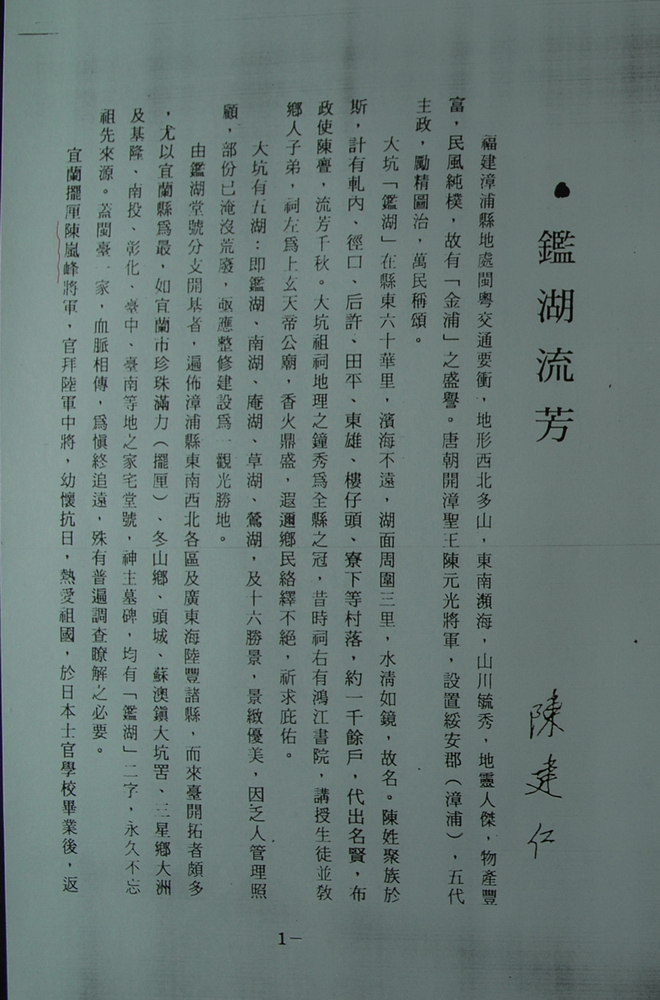 鑑湖流芳
陳建仁
福建漳浦縣地處閩粵交通要衝，地形西北多山，東南瀕海，山川毓秀，地靈人傑，物產豐
富，民風純樸，故有「金浦」之盛譽。唐朝開漳聖王陳元光將軍，設置綏安郡（漳浦），五代
主政，勵精圖治，萬民稱頌。
大坑「鑑湖」在縣東六十華里，濱海不遠，湖面周圍三里，水清如鏡，故名。陳姓聚族於
斯，計有軋內、徑口、后許、田平、東雄、樓仔頭、寮下等村落，約一千餘戶，代出名賢，布
政使陳亹，流芳千秋。大坑祖祠地理之鐘秀爲全縣之冠，昔時祠右有鴻江書院，講授生徒並敎
鄉人子弟，祠左爲上玄天帝公廟，香火鼎盛，遐邇鄉民絡繹不絕，祈求庇佑。
大坑有五湖：即鑑湖、南湖、庵湖、草湖、鶯湖，及十六勝景，景緻優美，因乏人管理照
顧，部份已淹沒荒廢，亟應整修建設爲一觀光勝地。
由鑑湖堂號分支開基者，遍佈漳浦縣東南西北各區及廣東海陸豐諸縣，而來臺開拓者頗多
，尤以宜蘭縣爲最，如宜蘭市珍珠滿力（擺厘）、冬山鄉、頭城、蘇澳鎭大坑罟、三星鄉大洲
及基隆、南投、彰化、臺中、臺南等地之家宅堂號，神主墓碑，均有「鑑湖」二字，永久不忘
祖先來源。蓋閩臺一家，血脈相傳，爲愼終追遠，殊有普遍調查瞭解之必要。
宜蘭擺厘陳嵐峰將軍，官拜陸軍中將，幼懷抗日，熱愛祖國，於日本士官學校畢業後，返
1—